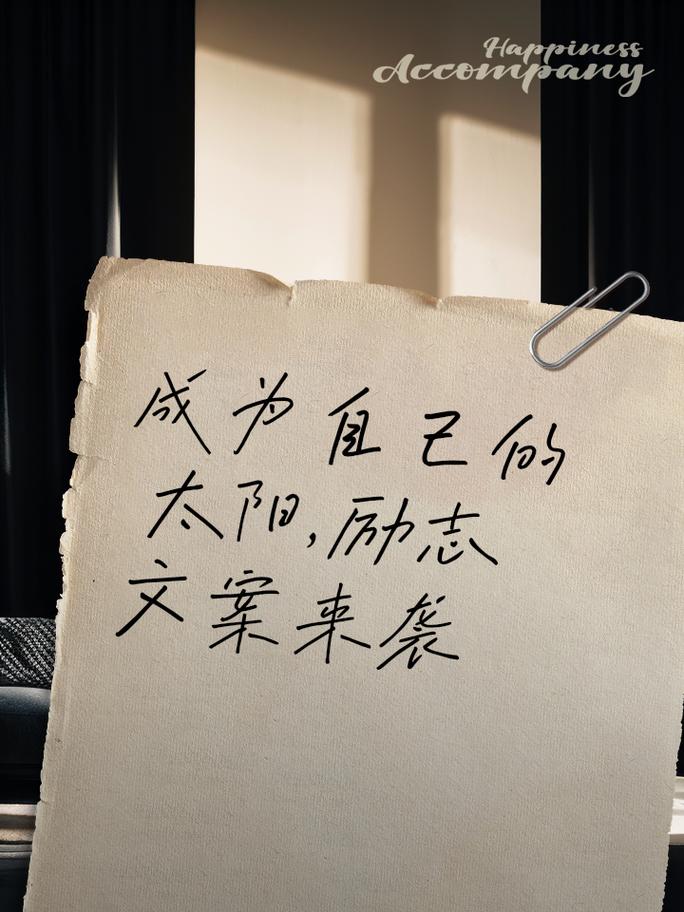 Happiness
Accompany
成为自己的
太阳,励志
文案来袭